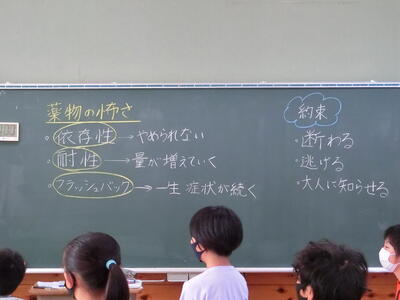 薬物の怖さ
・依存性→やめられない
・耐性→量が増えていく
・フラッシュバック→一生 症状が続く
約束
・断わる
・逃げる
・大人に知らせる